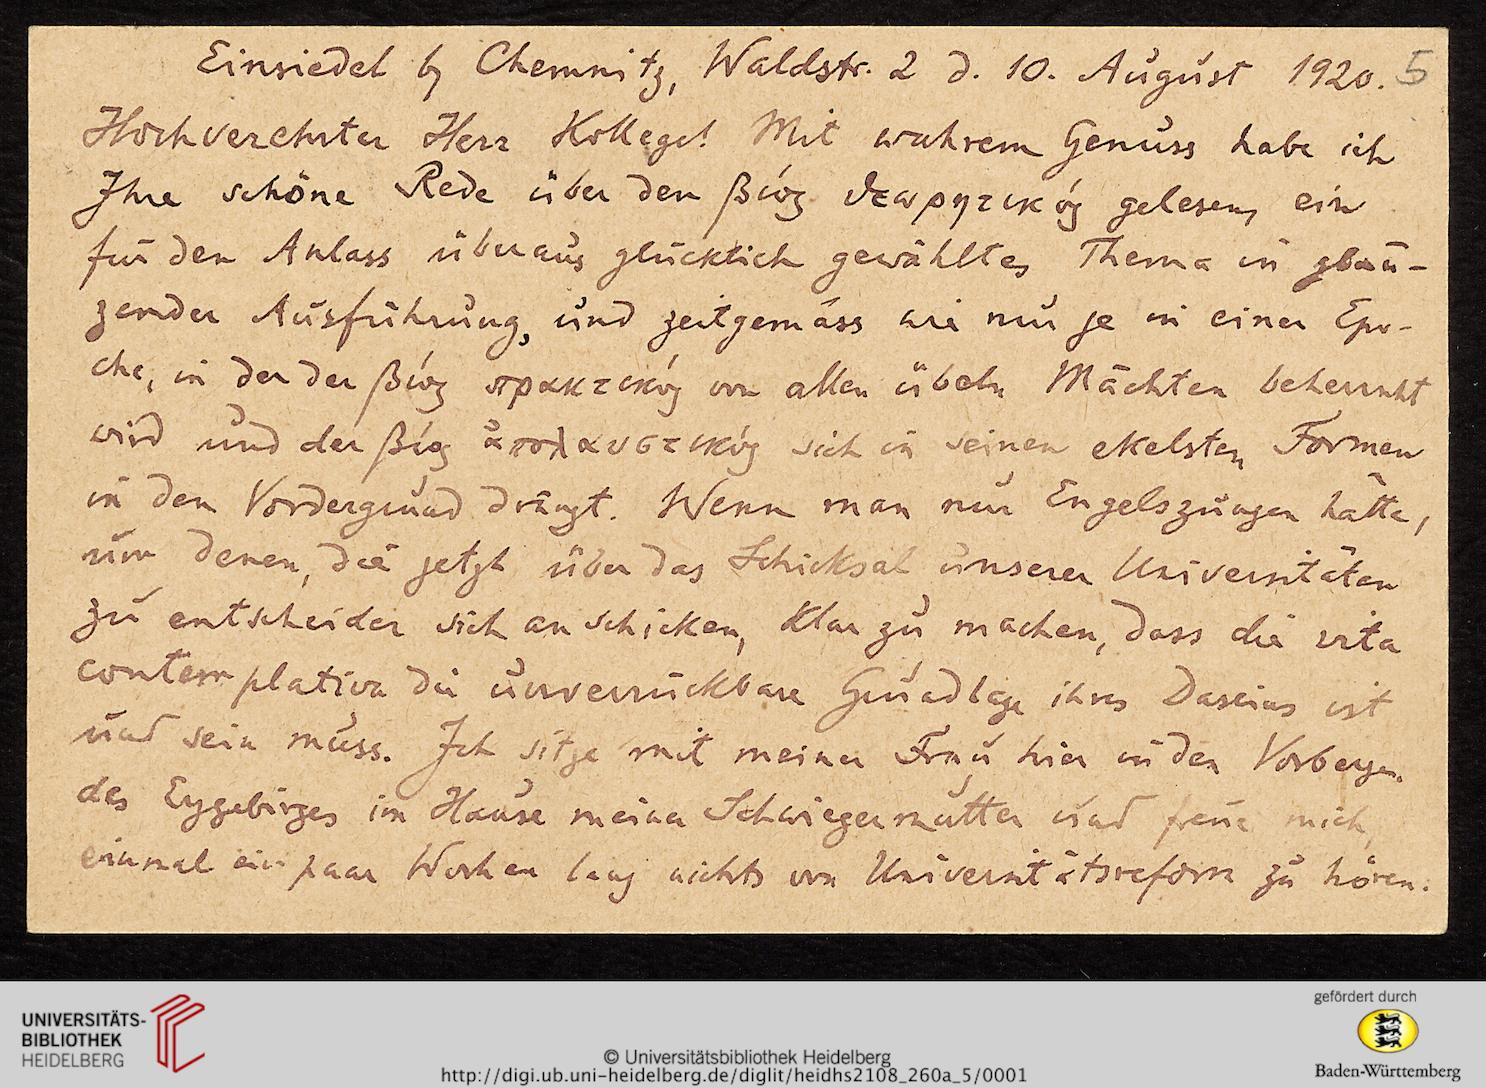 Einsiedel b/ Chemnitz, Waldstr. 2 d. 10. August 1920. 5
Hochverehrter Herr Kollege! Mit wahrem Genuss habe ich
Ihre schöne Rede über den βίος θεωρητικός gelesen, ein
für den Anlass überaus glücklich gewähltes Thema in glän-
zender Ausführung, und zeitgemäss wie nur je in einer Epo-
che, in der der βίος πρακτικός von allen übeln Mächten beherrscht
wird und der βίος ἀπολαυστικός sich in seinen ekelsten Formen
in den Vordergrund drängt. Wenn man nur Engelszungen hätte,
um denen, die jetzt über das Schicksal unserer Universitäten
zu entscheiden sich anschicken, klar zu machen, dass die vita
contemplativa die unverrückbare Grundlage ihres Daseins ist
und sein muss. Ich sitze mit meiner Frau hier in den Vorbergen
des Erzgebirges im Hause meiner Schwiegermutter und freue mich,
einmal ein paar Wochen lang nichts von Universitätsreform zu hören.
UNIVERSITÄTS-
BIBLIOTHEK
HEIDELBERG
© Universitätsbibliothek Heidelberg
http://digi.ub.uni-heidelberg.de/diglit/heidhs2108_260a_5/0001
gefördert durch
Baden-Württemberg